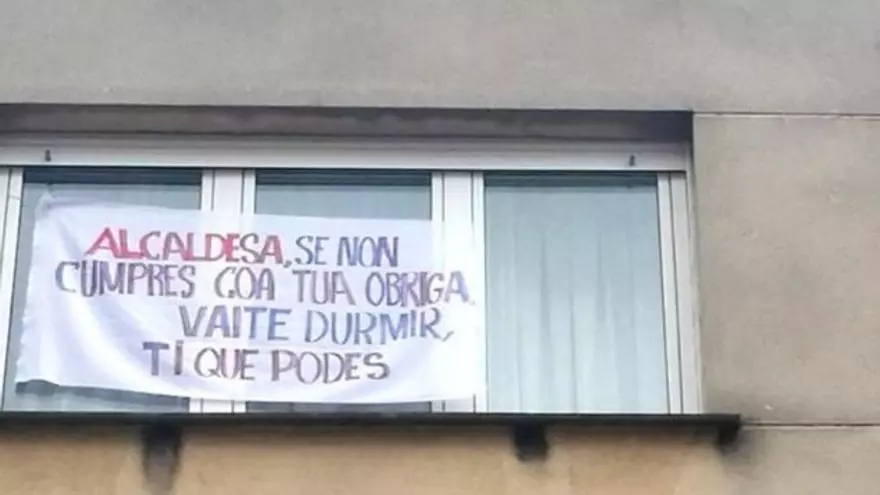 ALCALDESA, SE NON
CUMPRES COA TUA OBRIGA,
VAITE DURMIR,
TI QUE PODES